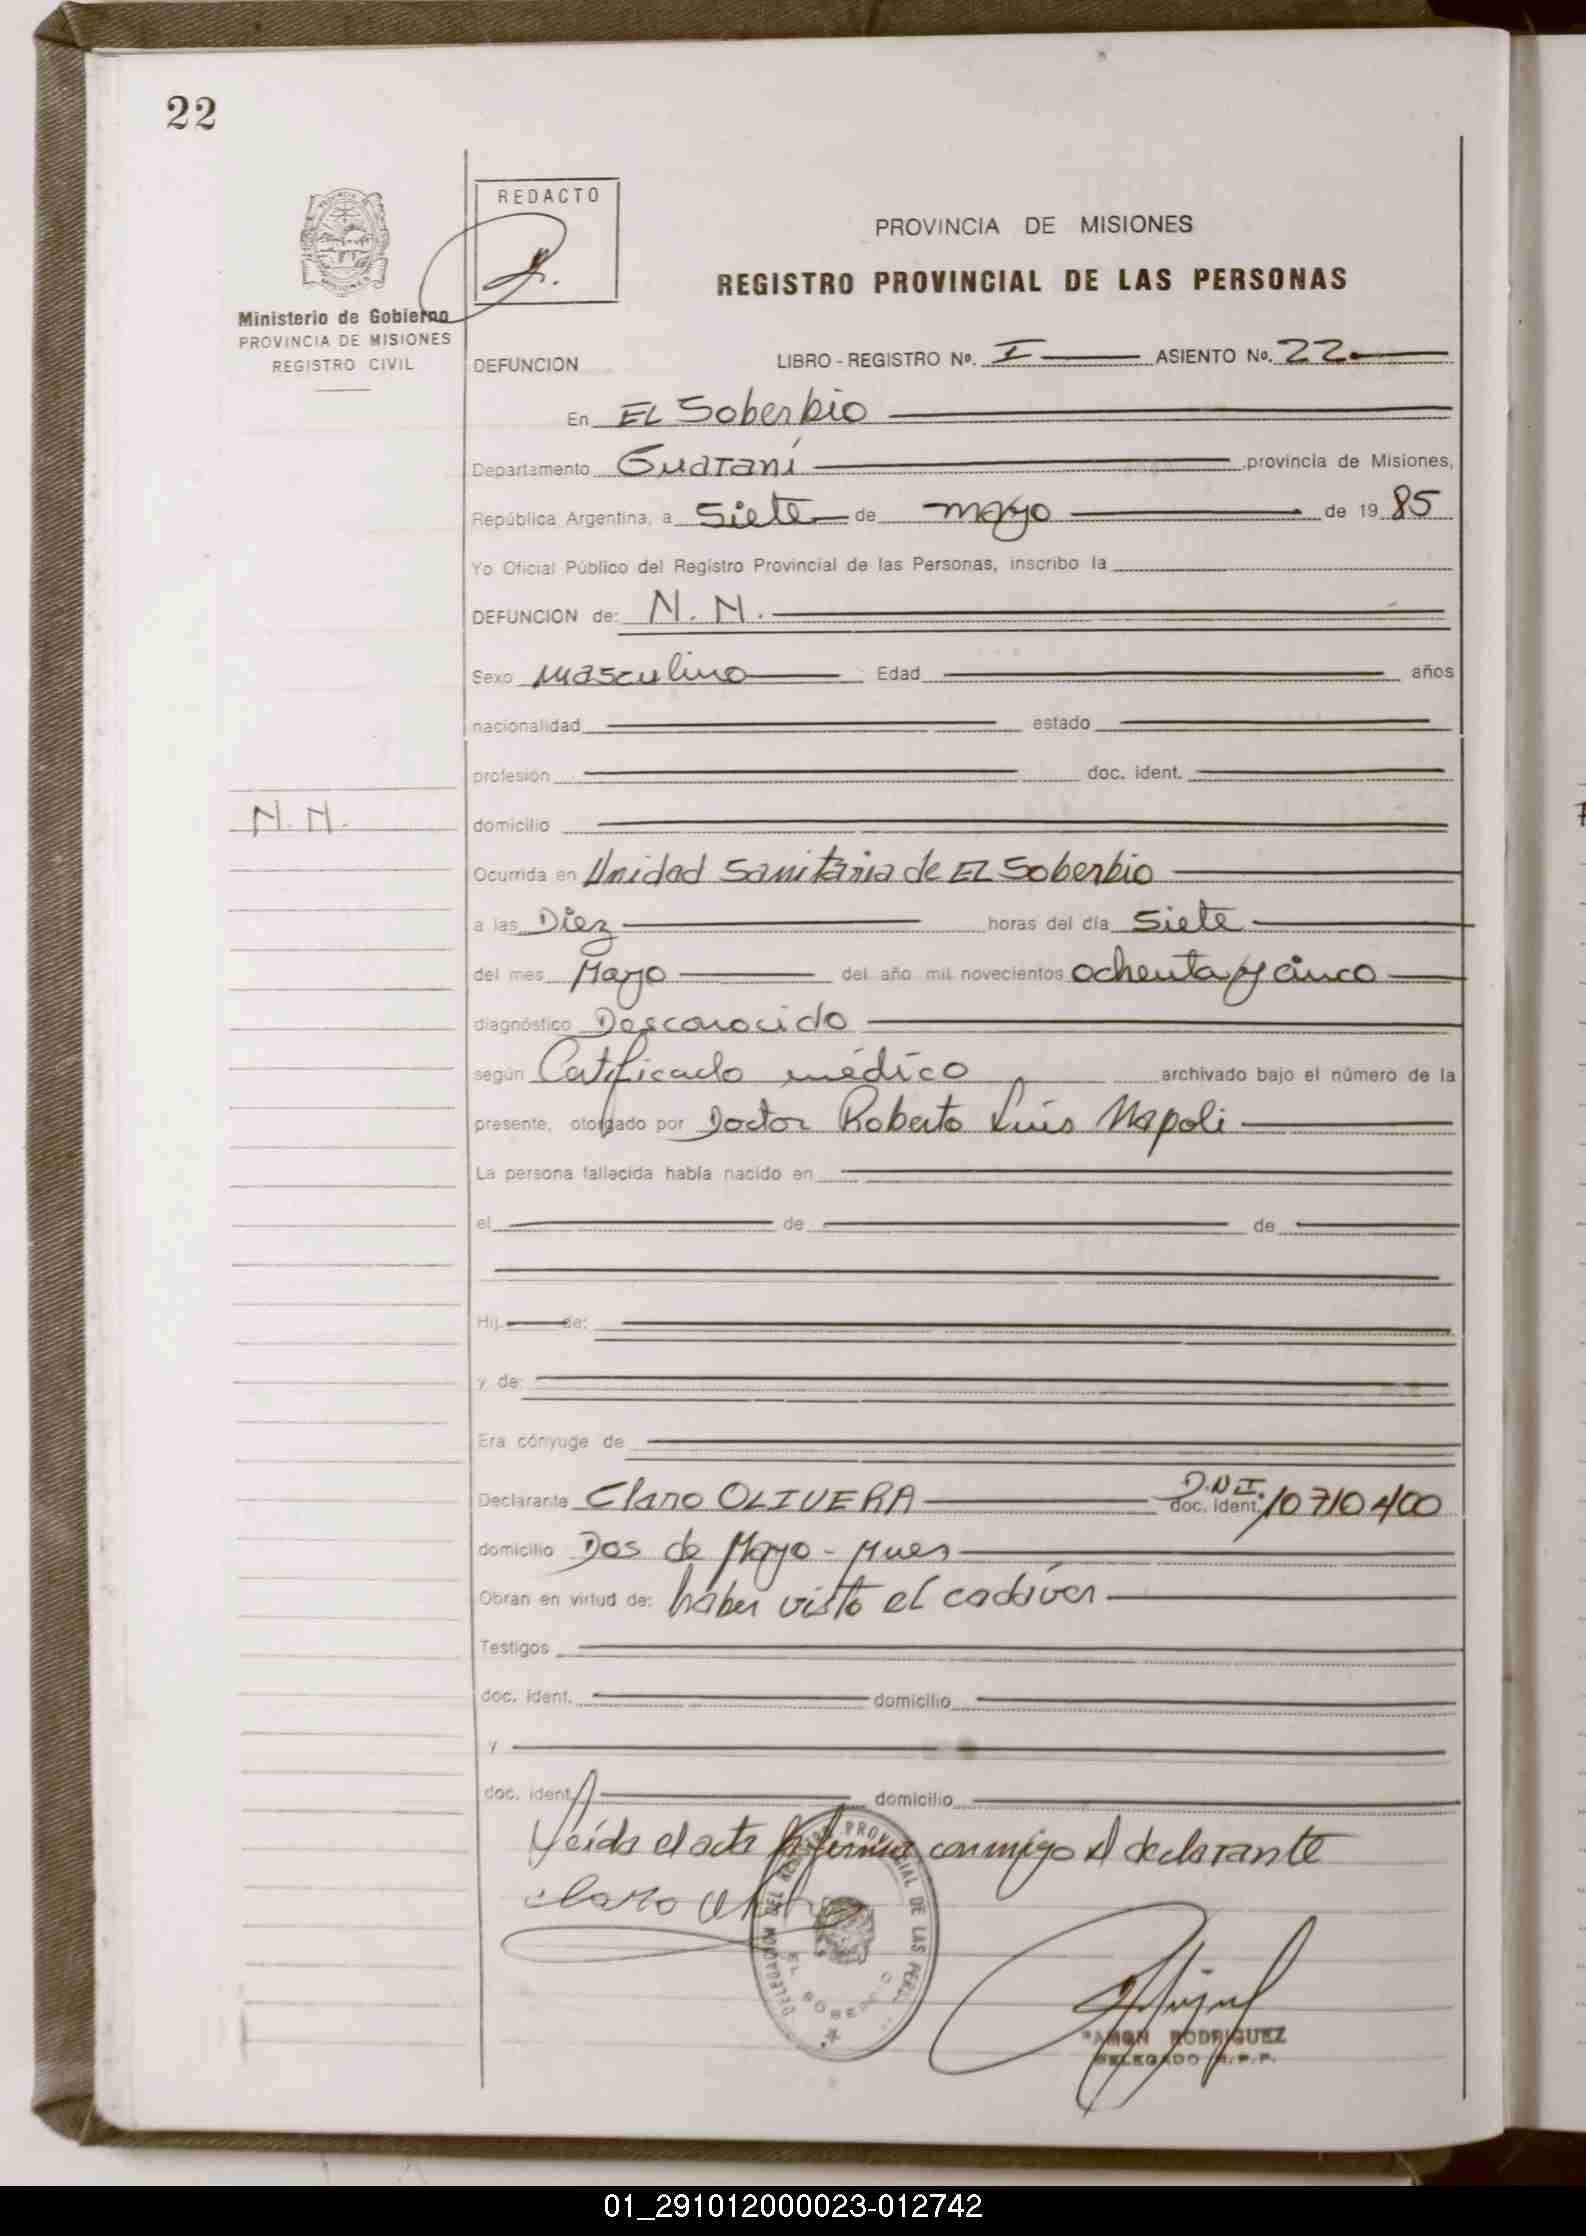 22
REDACTO
Ministerio de Gobierno
PROVINCIA DE MISIONES
REGISTRO CIVIL
PROVINCIA DE MISIONES
REGISTRO PROVINCIAL DE LAS PERSONAS
DEFUNCION LIBRO - REGISTRO Nº. I ASIENTO Nº. 22
En EL Soberbio
Departamento Guaraní provincia de Misiones,
República Argentina, a siete de mayo de 1985
Yo Oficial Público del Registro Provincial de las Personas, inscribo la
DEFUNCION de: N. N.
Sexo masculino Edad años
nacionalidad estado
profesión doc. ident.
N. N.
domicilio
Ocurrida en Unidad Sanitaria de EL Soberbio
a las Diez horas del día siete
del mes Mayo del año mil novecientos ochenta y cinco
diagnóstico Desconocido
según Certificado médico archivado bajo el número de la
presente, otorgado por Doctor Roberto Luis Napoli
La persona fallecida había nacido en
el de de
Hij de:
y de:
Era cónyuge de
Declarante Claro OLIVERA D.N.I. doc. ident. 10710400
domicilio Dos de Mayo - Mnes
Obran en virtud de: haber visto el cadáver
Testigos
doc. ident. domicilio
y
doc. ident. domicilio
Leída el acta la firma conmigo el declarante
claro
DELEGACION DEL REGISTRO PROVINCIAL DE LAS PERS.
EL SOBERBIO
RAMON RODRIGUEZ
DELEGADO R.P.P.
01_291012000023-012742